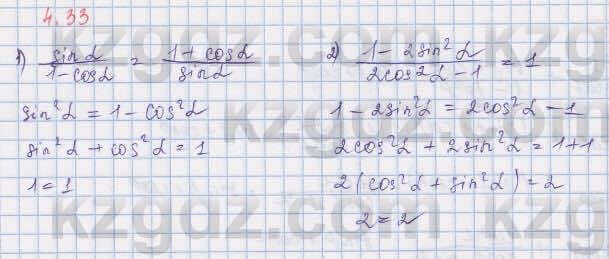 4.33
1) sinα/(1-cosα) = (1+cosα)/sinα
sin²α = 1 - cos²α
sin²α + cos²α = 1
1 = 1
2) (1-2sin²α)/(2cos²α-1) = 1
1-2sin²α = 2cos²α-1
2cos²α + 2sin²α = 1+1
2(cos²α + sin²α) = 2
2 = 2
kzgdz.com